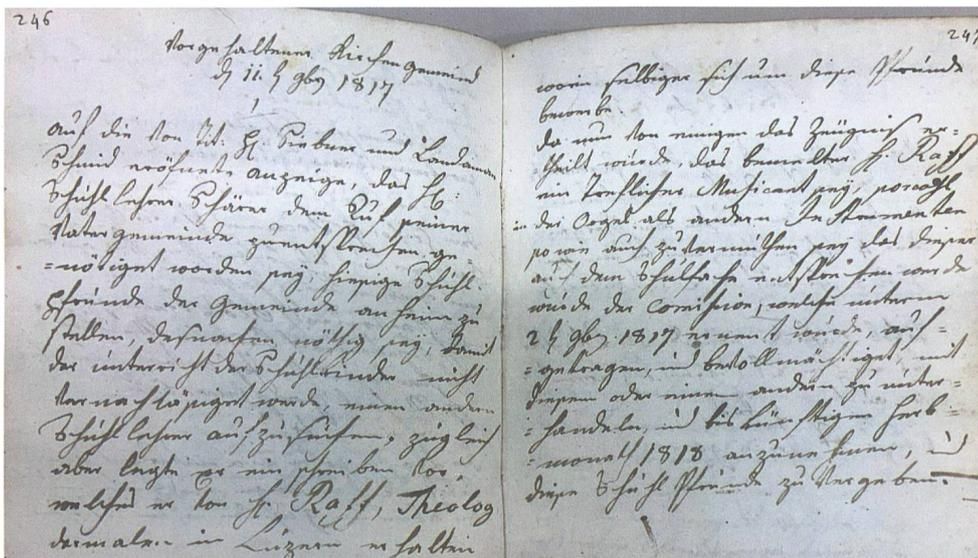 246
Vorgehaltener Kirchengemeind
d 11. 9br 1817
1
Auf die von Tit: H. Siebner und Landaman
Schmid eröfnete Anzeige, das H:
Schuhllehrer Schärer dem Ruf seiner
Vatergemeinde zuentsprechen ge=
=nöthiget worden sey, hiesige Schuhl
Pfründe der Gemeinde anheim zu
stellen, desnachen nöthig sey, damit
der unterricht der Schuhlkinder nicht
vernachläßiget werde, einen andern
Schuhllehrer aufzusuchen, zugleich
aber legte er ein schreiben vor
welches er von H. Raff, Theolog
dermalen in Luzern erhalten
247
worin selbiger sich um diese Pfründe
bewerbe.
da nun von einigen das Zeügniß er=
theilt wurde, das bemelter H. Raff
ein Treflicher Musicant sey, sowohl
in der Orgel als andern Instrumenten
so wie auch zu vermuthen sey das dieser
auch dem Schulfache entsprechen werde
wurde der Comission, welche unterm
9br 1817 ernent wurde, auf=
=getragen, und bevollmächtiget, mit
diesem oder einem andern zu unter=
=handeln, und bis künftigen Herb
=monath 1818 anzunehmen, und
diese Schuhl Pfründe zu vergeben.